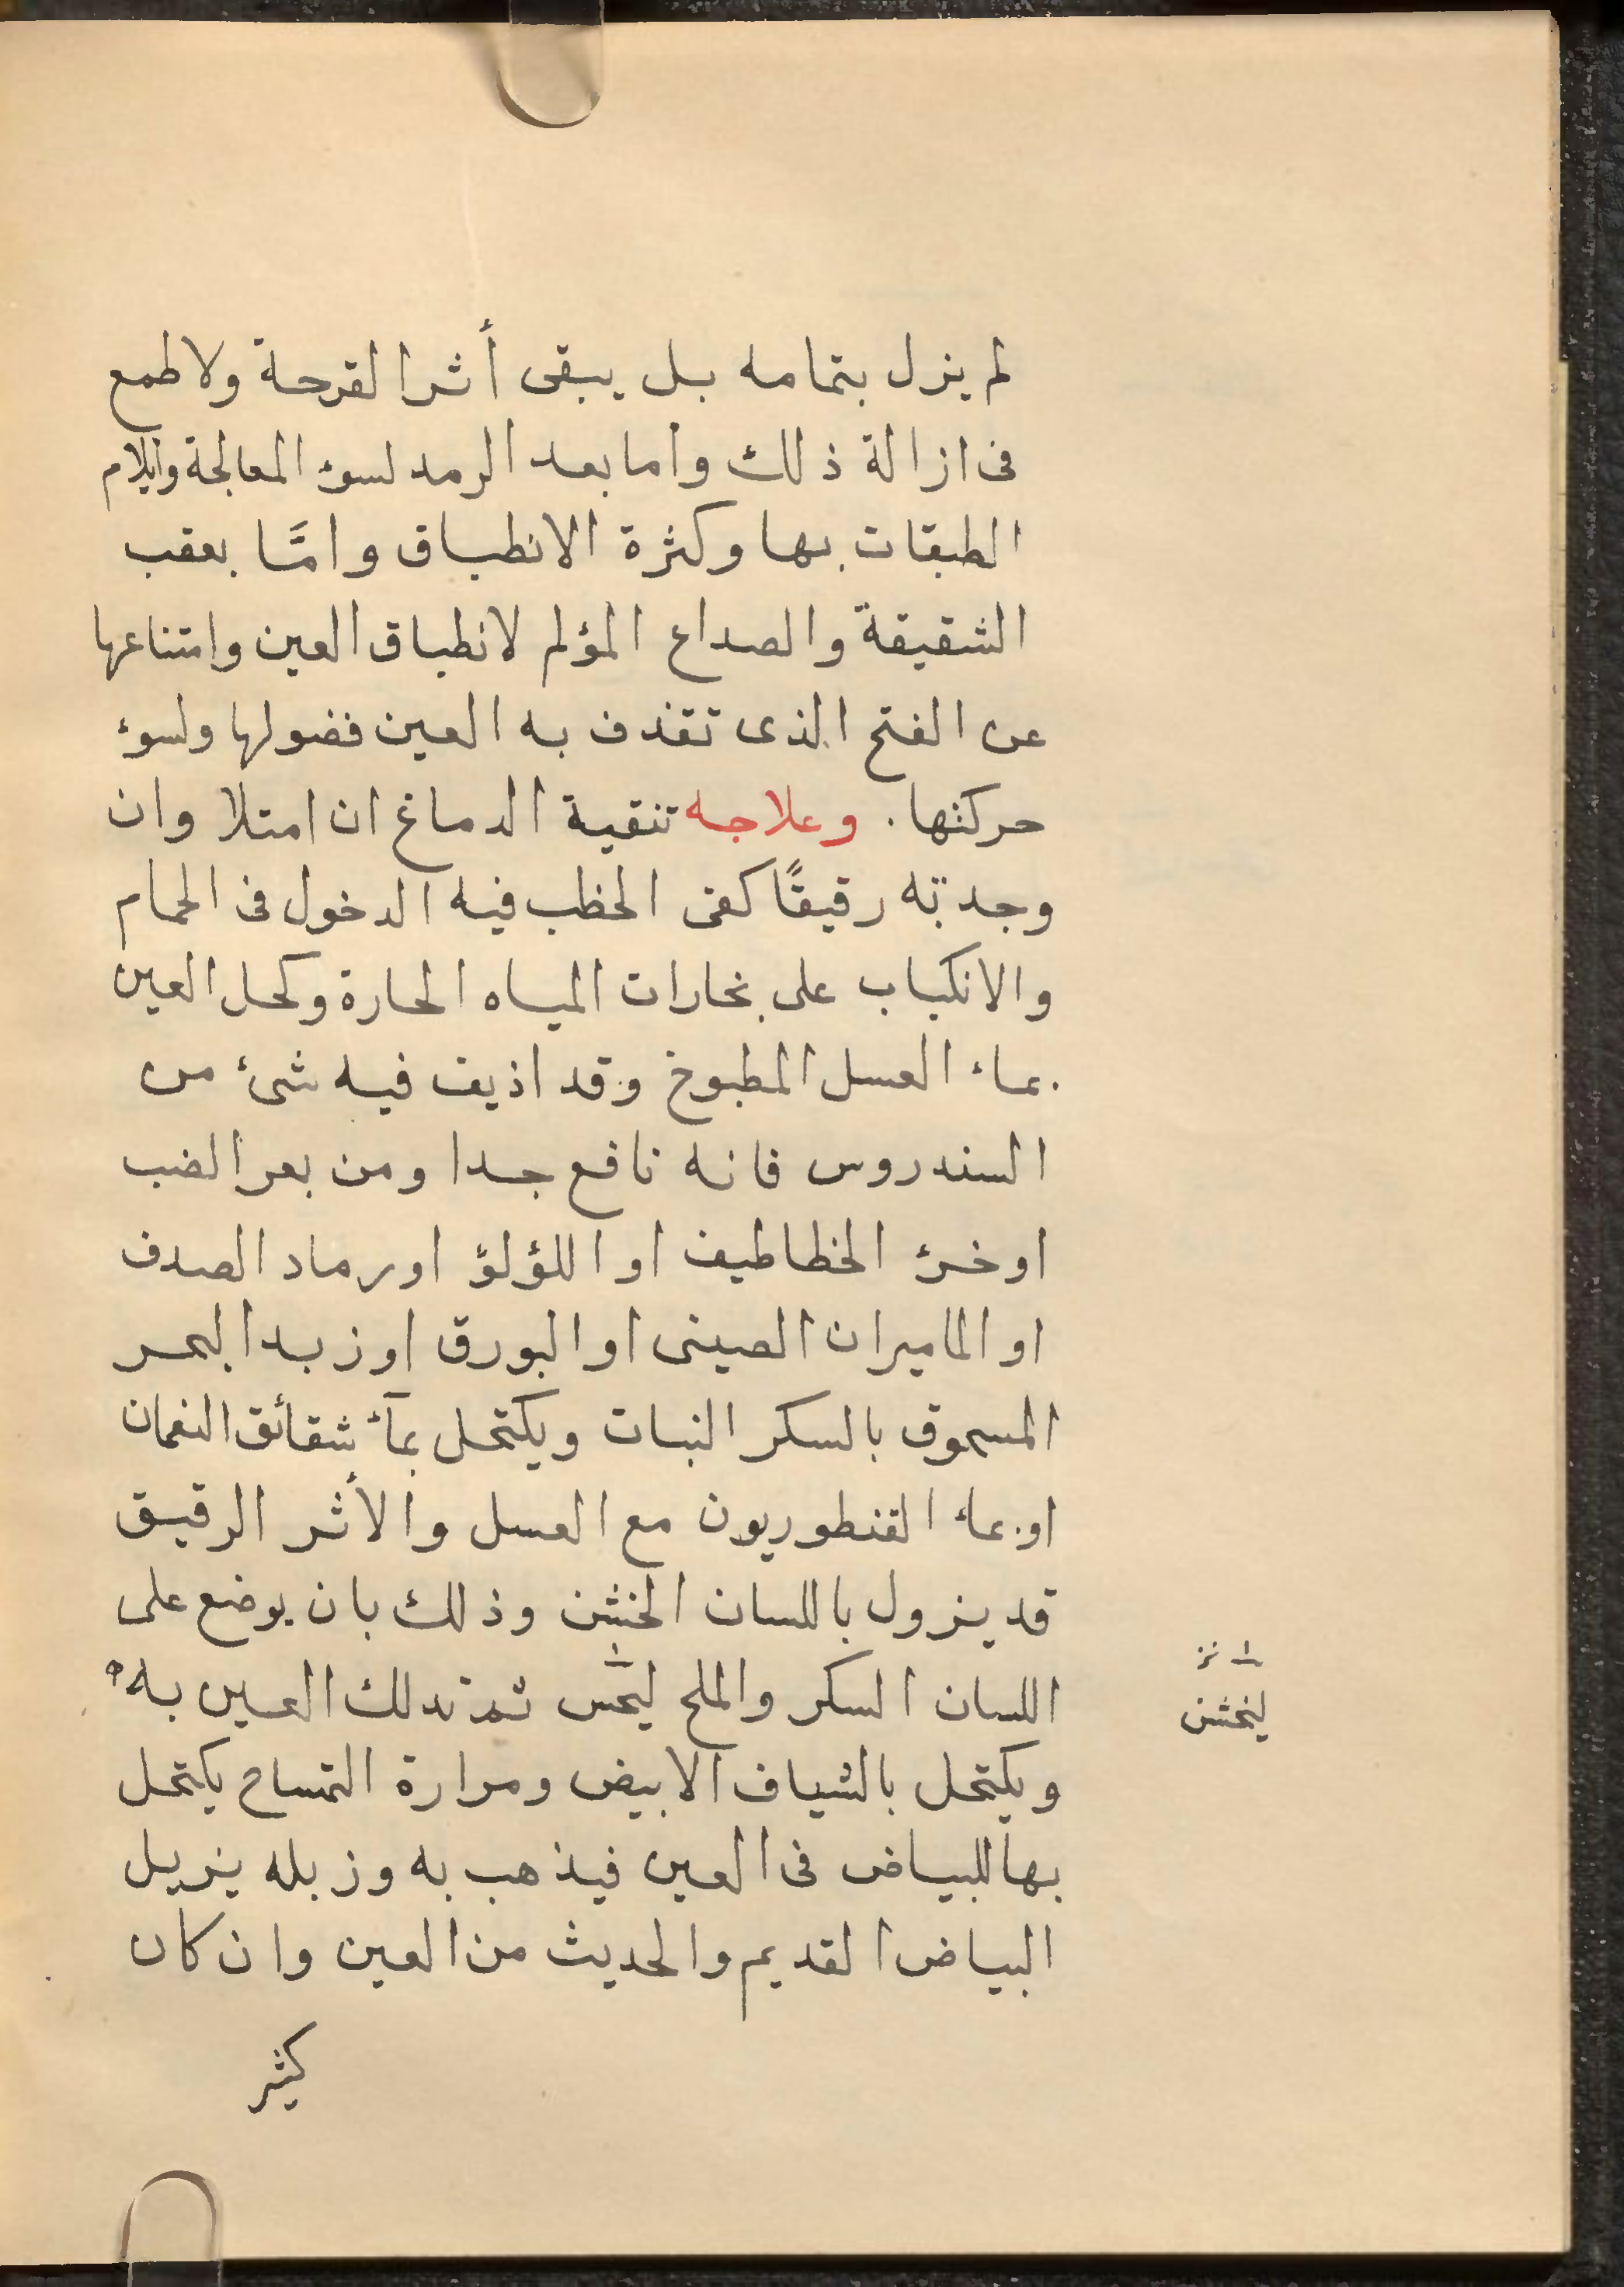 لم يزل بتمامه بل يبقى أثر القرحة ولا طمع
فى ازالة ذلك واما بعد الرمد لسوء المعالجة وايلام
الطبقات بها وكثرة الانطباق وامَّا بعقب
الشقيقة والصداع المؤلم لانطباق العين وامتناعها
عن الفتح الذى تقذف به العين فضولها ولسوء
حركتها . وعلاجه تنقية الدماغ ان امتلا وان
وجدته رقيقًا كفى الخطب فيه الدخول فى الحمام
والانكباب على بخارات المياه الحارة وكحل العين
بماء العسل المطبوخ وقد اذيف فيه شئ من
السندروس فانه نافع جدا ومن بعر الضب
او خرؤ الخطاطيف او اللؤلؤ او رماد الصدف
او الماميران الصينى او البورق او زبد البحر
المسحوق بالسكر النبات ويكتحل بمآء شقائق النعمان
او بماء القنطوريون مع العسل والأثر الرقيق
قد يزول باللسان الخشن وذلك بان يوضع على
اللسان السكر والملح ليخش ثم تدلك العين به
ليخشن
ويكتحل بالشياف الابيض ومرارة التمساح يكتحل
بها للبياض فى العين فيذهب به وزبله يزيل
البياض القديم والحديث من العين وان كان
كثير